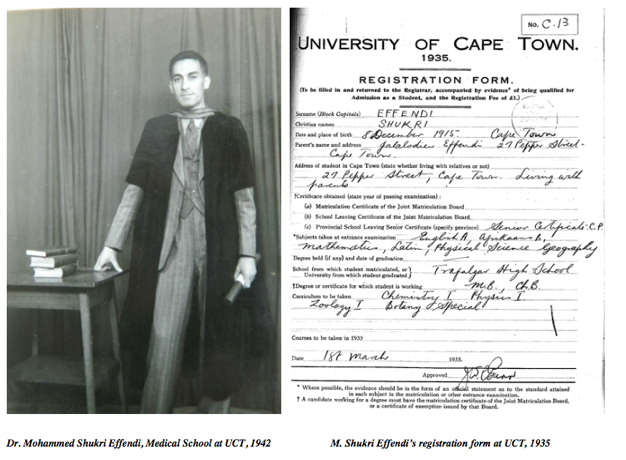 No. C.13
UNIVERSITY OF CAPE TOWN.
1935.
REGISTRATION FORM.
(To be filled in and returned to the Registrar, accompanied by evidence* of being qualified for
Admission as a Student, and the Registration Fee of £1.)
Surname (Block Capitals) EFFENDI
Christian names SHUKRI
Date and place of birth 8 December 1915. Cape Town
Parent's name and address Effendi 27 Pepper Street
Cape Town.
Address of student in Cape Town (state whether living with relatives or not)
27 Pepper Street, Cape Town. Living with
parents
†Certificate obtained (state year of passing examination) :
(a) Matriculation Certificate of the Joint Matriculation Board
(b) School Leaving Certificate of the Joint Matriculation Board
(c) Provincial School Leaving Senior Certificate (specify province) Senior Certificate C.P.
*Subjects taken at entrance examination English A, Afrikaans
Mathematics, Latin, Physical Science Geography
Degree held (if any) and date of graduation
School from which student matriculated, or
University from which student graduated } Trafalgar High School
†Degree or certificate for which student is working M.B., Ch.B.
Curriculum to be taken Chemistry I Physics I
Zoology I Botany Special
Courses to be taken in 1935
Date 1st March 1935.
Approved
* Where possible, the evidence should be in the form of an official statement as to the standard attained
in each subject in the matriculation or other entrance examination.
† A candidate working for a degree must have the matriculation certificate of the Joint Matriculation Board,
or a certificate of exemption issued by that Board.
Dr. Mohammed Shukri Effendi, Medical School at UCT, 1942
M. Shukri Effendi's registration form at UCT, 1935